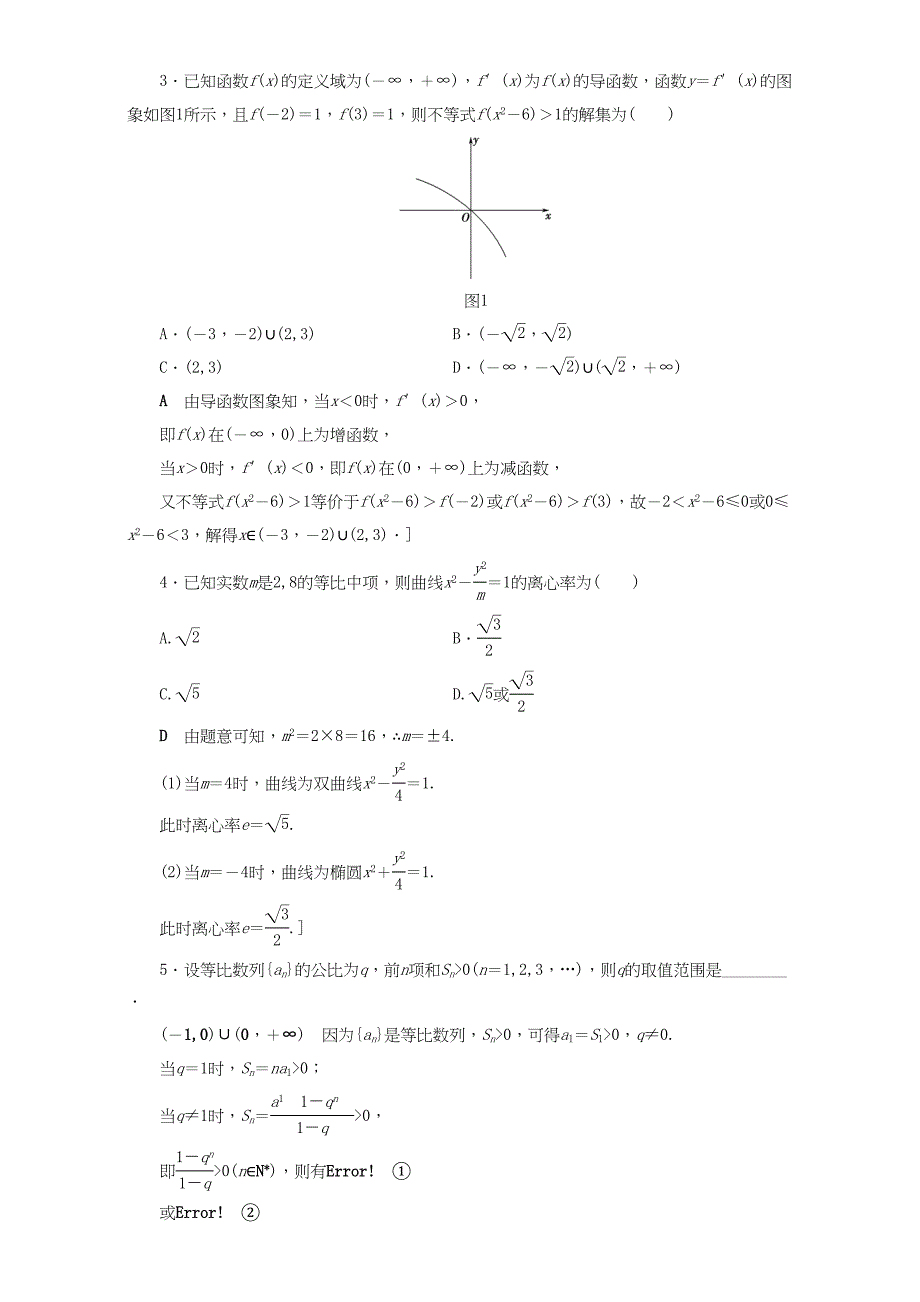 3．已知函数f(x)的定义域为(－∞，＋∞)，f′(x)为f(x)的导函数，函数y＝f′(x)的图
象如图1所示，且f(－2)＝1，f(3)＝1，则不等式f(x²－6)＞1的解集为(　　)
y
O
x
图1
A．(－3，－2)∪(2,3)　　B．(－√2，√2)
C．(2,3)　　D．(－∞，－√2)∪(√2，＋∞)
A　由导函数图象知，当x＜0时，f′(x)＞0，
即f(x)在(－∞，0)上为增函数，
当x＞0时，f′(x)＜0，即f(x)在(0，＋∞)上为减函数，
又不等式f(x²－6)＞1等价于f(x²－6)＞f(－2)或f(x²－6)＞f(3)，故－2＜x²－6≤0或0≤
x²－6＜3，解得x∈(－3，－2)∪(2,3)．]
4．已知实数m是2,8的等比中项，则曲线x²－y²/m＝1的离心率为(　　)
A.√2　　B．√3/2
C.√5　　D.√5或√3/2
D　由题意可知，m²＝2×8＝16，∴m＝±4.
(1)当m＝4时，曲线为双曲线x²－y²/4＝1.
此时离心率e＝√5.
(2)当m＝－4时，曲线为椭圆x²＋y²/4＝1.
此时离心率e＝√3/2.]
5．设等比数列{aₙ}的公比为q，前n项和Sₙ>0(n＝1,2,3，…)，则q的取值范围是________
．
(－1,0)∪(0，＋∞)　因为{aₙ}是等比数列，Sₙ>0，可得a₁＝S₁>0，q≠0.
当q＝1时，Sₙ＝na₁>0；
当q≠1时，Sₙ＝a¹　1－qⁿ/1－q>0，
即1－qⁿ/1－q>0(n∈N*)，则有Error!　①
或Error!　②